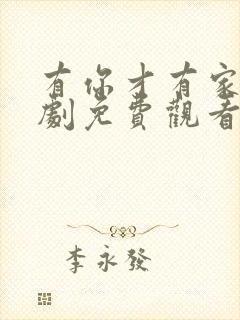 有你才有家
劇免費觀看
李永發